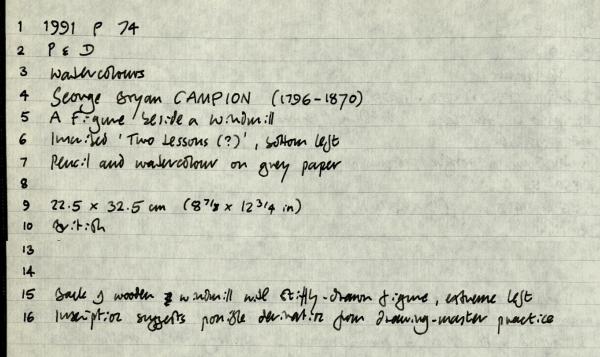 1 1991 P 74
2 P & D
3 Watercolours
4 George Bryan CAMPION (1796-1870)
5 A Figure beside a windmill
6 Inscribed 'Two Lessons (?)', bottom left
7 Pencil and watercolour on grey paper
8
9 22.5 x 32.5 cm (8 7/8 x 12 3/4 in)
10 British
13
14
15 Back of wooden windmill with stiffly-drawn figure, extreme left
16 Inscription suggests possible derivation from drawing-master practice